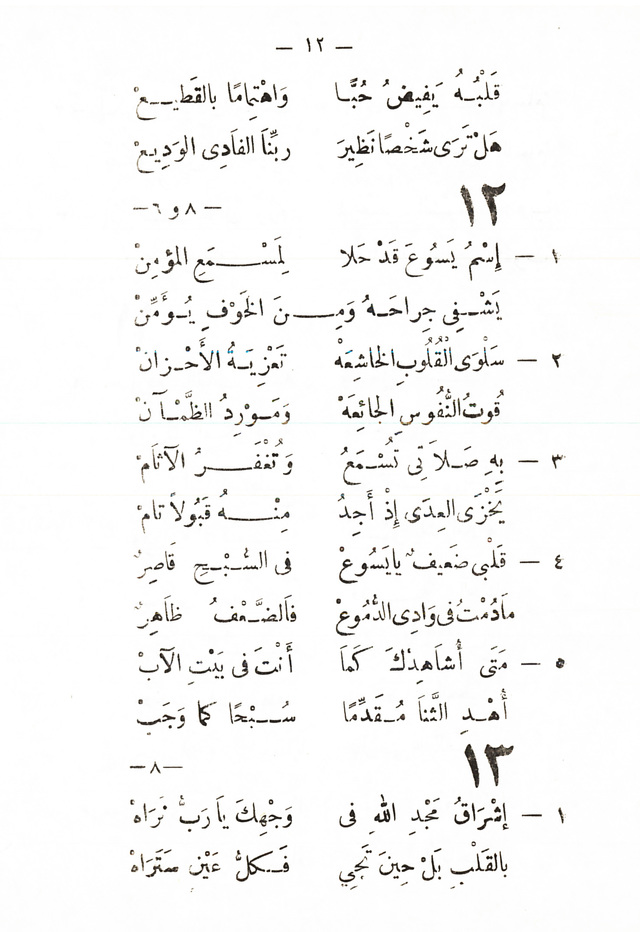 — ١٢ —
قَلْبُـهُ يَفِيضُ حُبًّا وَاهْتِمَامًا بالقَطِيـعْ
هَلْ تَرَى شَخْصًا نَظِيرَ ربِّنَا الفَادِى الوَدِيعْ
١٢
— ٨ و ٦ —
١ — إِسْمُ يَسُوعَ قَدْ حَلا لِمَسْـمَعِ المؤمِنْ
يَشْـفِى جِراحَـهُ وَمِـنَ الخَوْفِ يُـؤَمِّنْ
٢ — سَلْوَى الْقُلُوبِ الخاشِعَهْ تَعْزِيَـةُ الأَحْـزانْ
قُوتُ النُّفُوسِ الجائِعَهْ وَمَـوْرِدُ الظَّمْـآنْ
٣ — بِهِ صَـلاَتِى تُسْـمَعُ وَتُغْفَـرُ الآثَامْ
يَخْزَى العِدَى إِذْ أَجِدُ مِنْـهُ قَبُولاً تامْ
٤ — قَلْبِى ضَعِيفٌ يايَسُوعْ فى السُّـبْـحِ قَاصِرْ
مَادُمْتُ فى وَادِى الدُّمُوعْ فَالضَّـعْفُ ظَاهِرْ
٥ — مَتَى أُشَاهِدْكَ كَمَا أَنْتَ فى بَيْتِ الآبْ
أُهْـدِ الثَّنَا مُـقَدِّمًا سُـبْحًا كما وَجَبْ
١٣
— ٨ —
١ — إِشْرَاقُ مَجْدِ اللهِ فى وَجْهِكَ يَا رَبُّ نَرَاهْ
بالقَلْبِ بَلْ حِينَ تَجِي فَـكلُّ عَيْنٍ سَتَرَاهْ